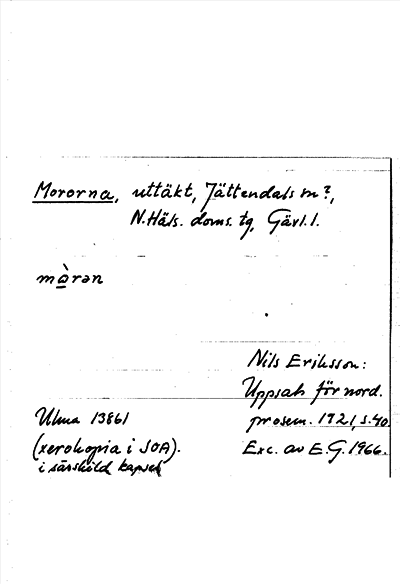 Mororna, uttäkt, Jättendals sn?,
N.Häls. doms. tg, Gävl. l.
mə̀rən
Nils Eriksson:
Uppsats för nord.
prosem. 1921, s.40.
Exc. av E.G. 1966.
Ulma 13861
(xerokopia i SOA).
i särskild kapsel